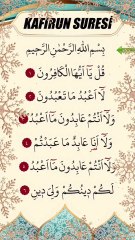 KAFİRUN SURESİ
بِسْمِ اللّٰهِ الرَّحْمٰنِ الرَّحِيمِ
قُلْ يَٓا اَيُّهَا الْكَافِرُونَ ١
لَٓا اَعْبُدُ مَا تَعْبُدُونَ ٢
وَلَٓا اَنْتُمْ عَابِدُونَ مَٓا اَعْبُدُ ٣
وَلَٓا اَنَا۬ عَابِدٌ مَا عَبَدْتُمْ ٤
وَلَٓا اَنْتُمْ عَابِدُونَ مَٓا اَعْبُدُ ٥
لَكُمْ د۪ينُكُمْ وَلِيَ د۪ينِ ٦